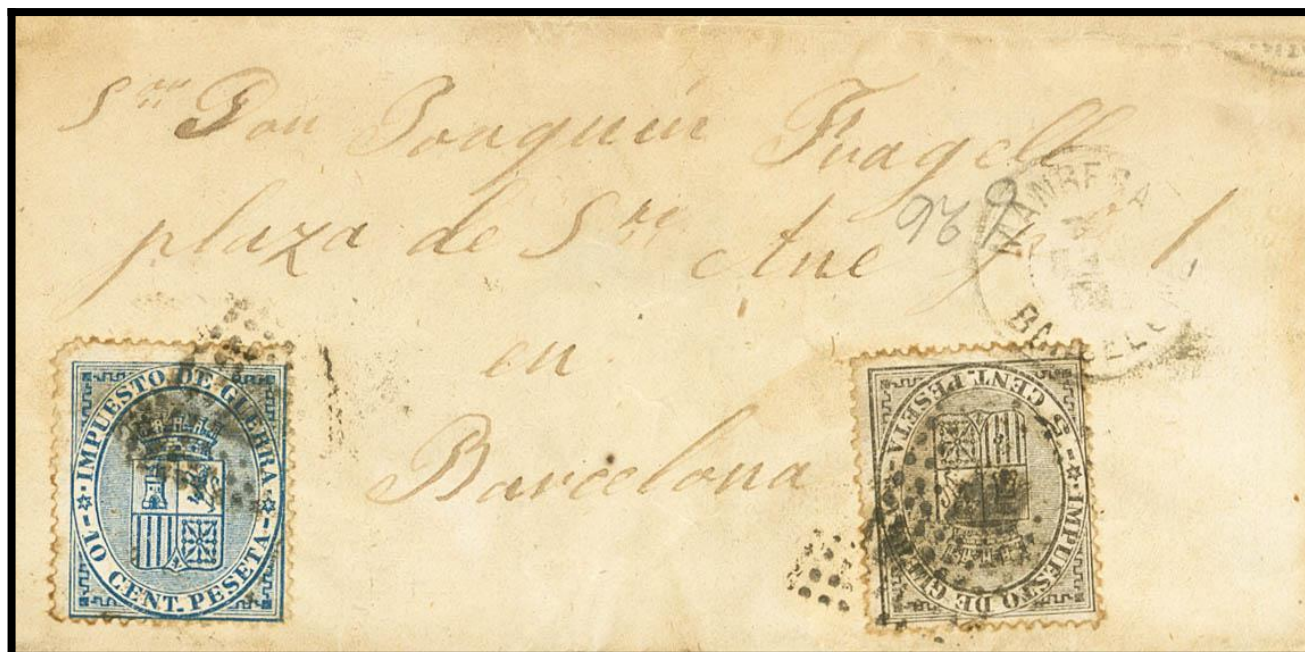 Sor Don Joaquin Fragell
plaza de Sta Ane no 1.
en
Barcelona
969
MANRESA
BARCELO
IMPUESTO DE GUERRA
10 CENT. PESETA
IMPUESTO DE GUERRA
5 CENT. PESETA